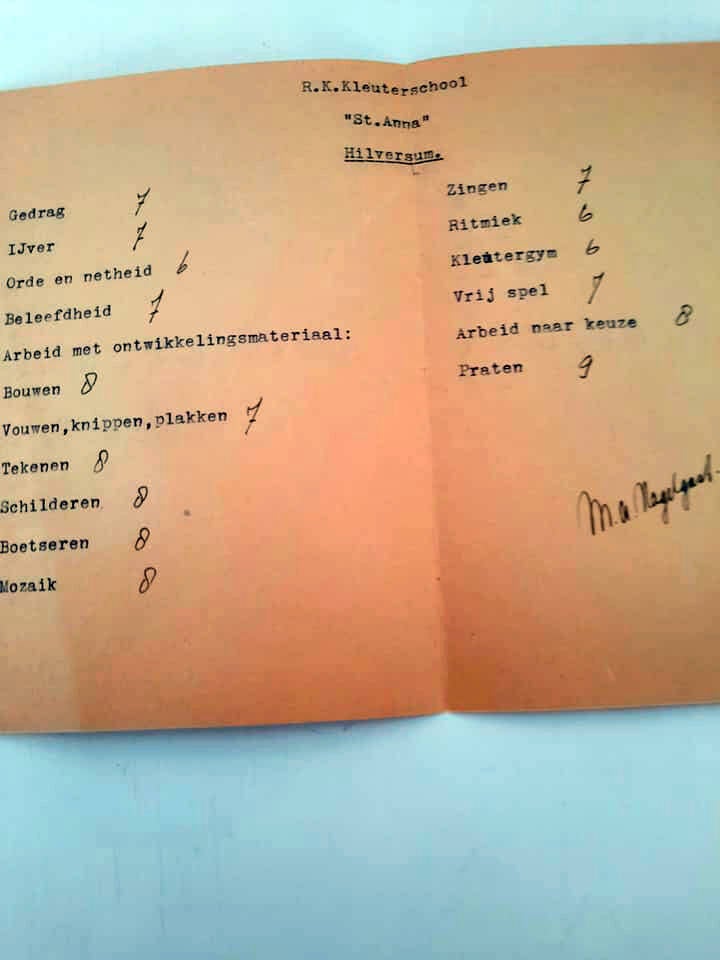 R.K.Kleuterschool
"St.Anna"
Hilversum.
Gedrag 7
IJver 7
Orde en netheid 6
Beleefdheid 7
Arbeid met ontwikkelingsmateriaal:
Bouwen 8
Vouwen,knippen,plakken 7
Tekenen 8
Schilderen 8
Boetseren 8
Mozaik 8
Zingen 7
Ritmiek 6
Kleutergym 6
Vrij spel 7
Arbeid naar keuze 8
Praten 9